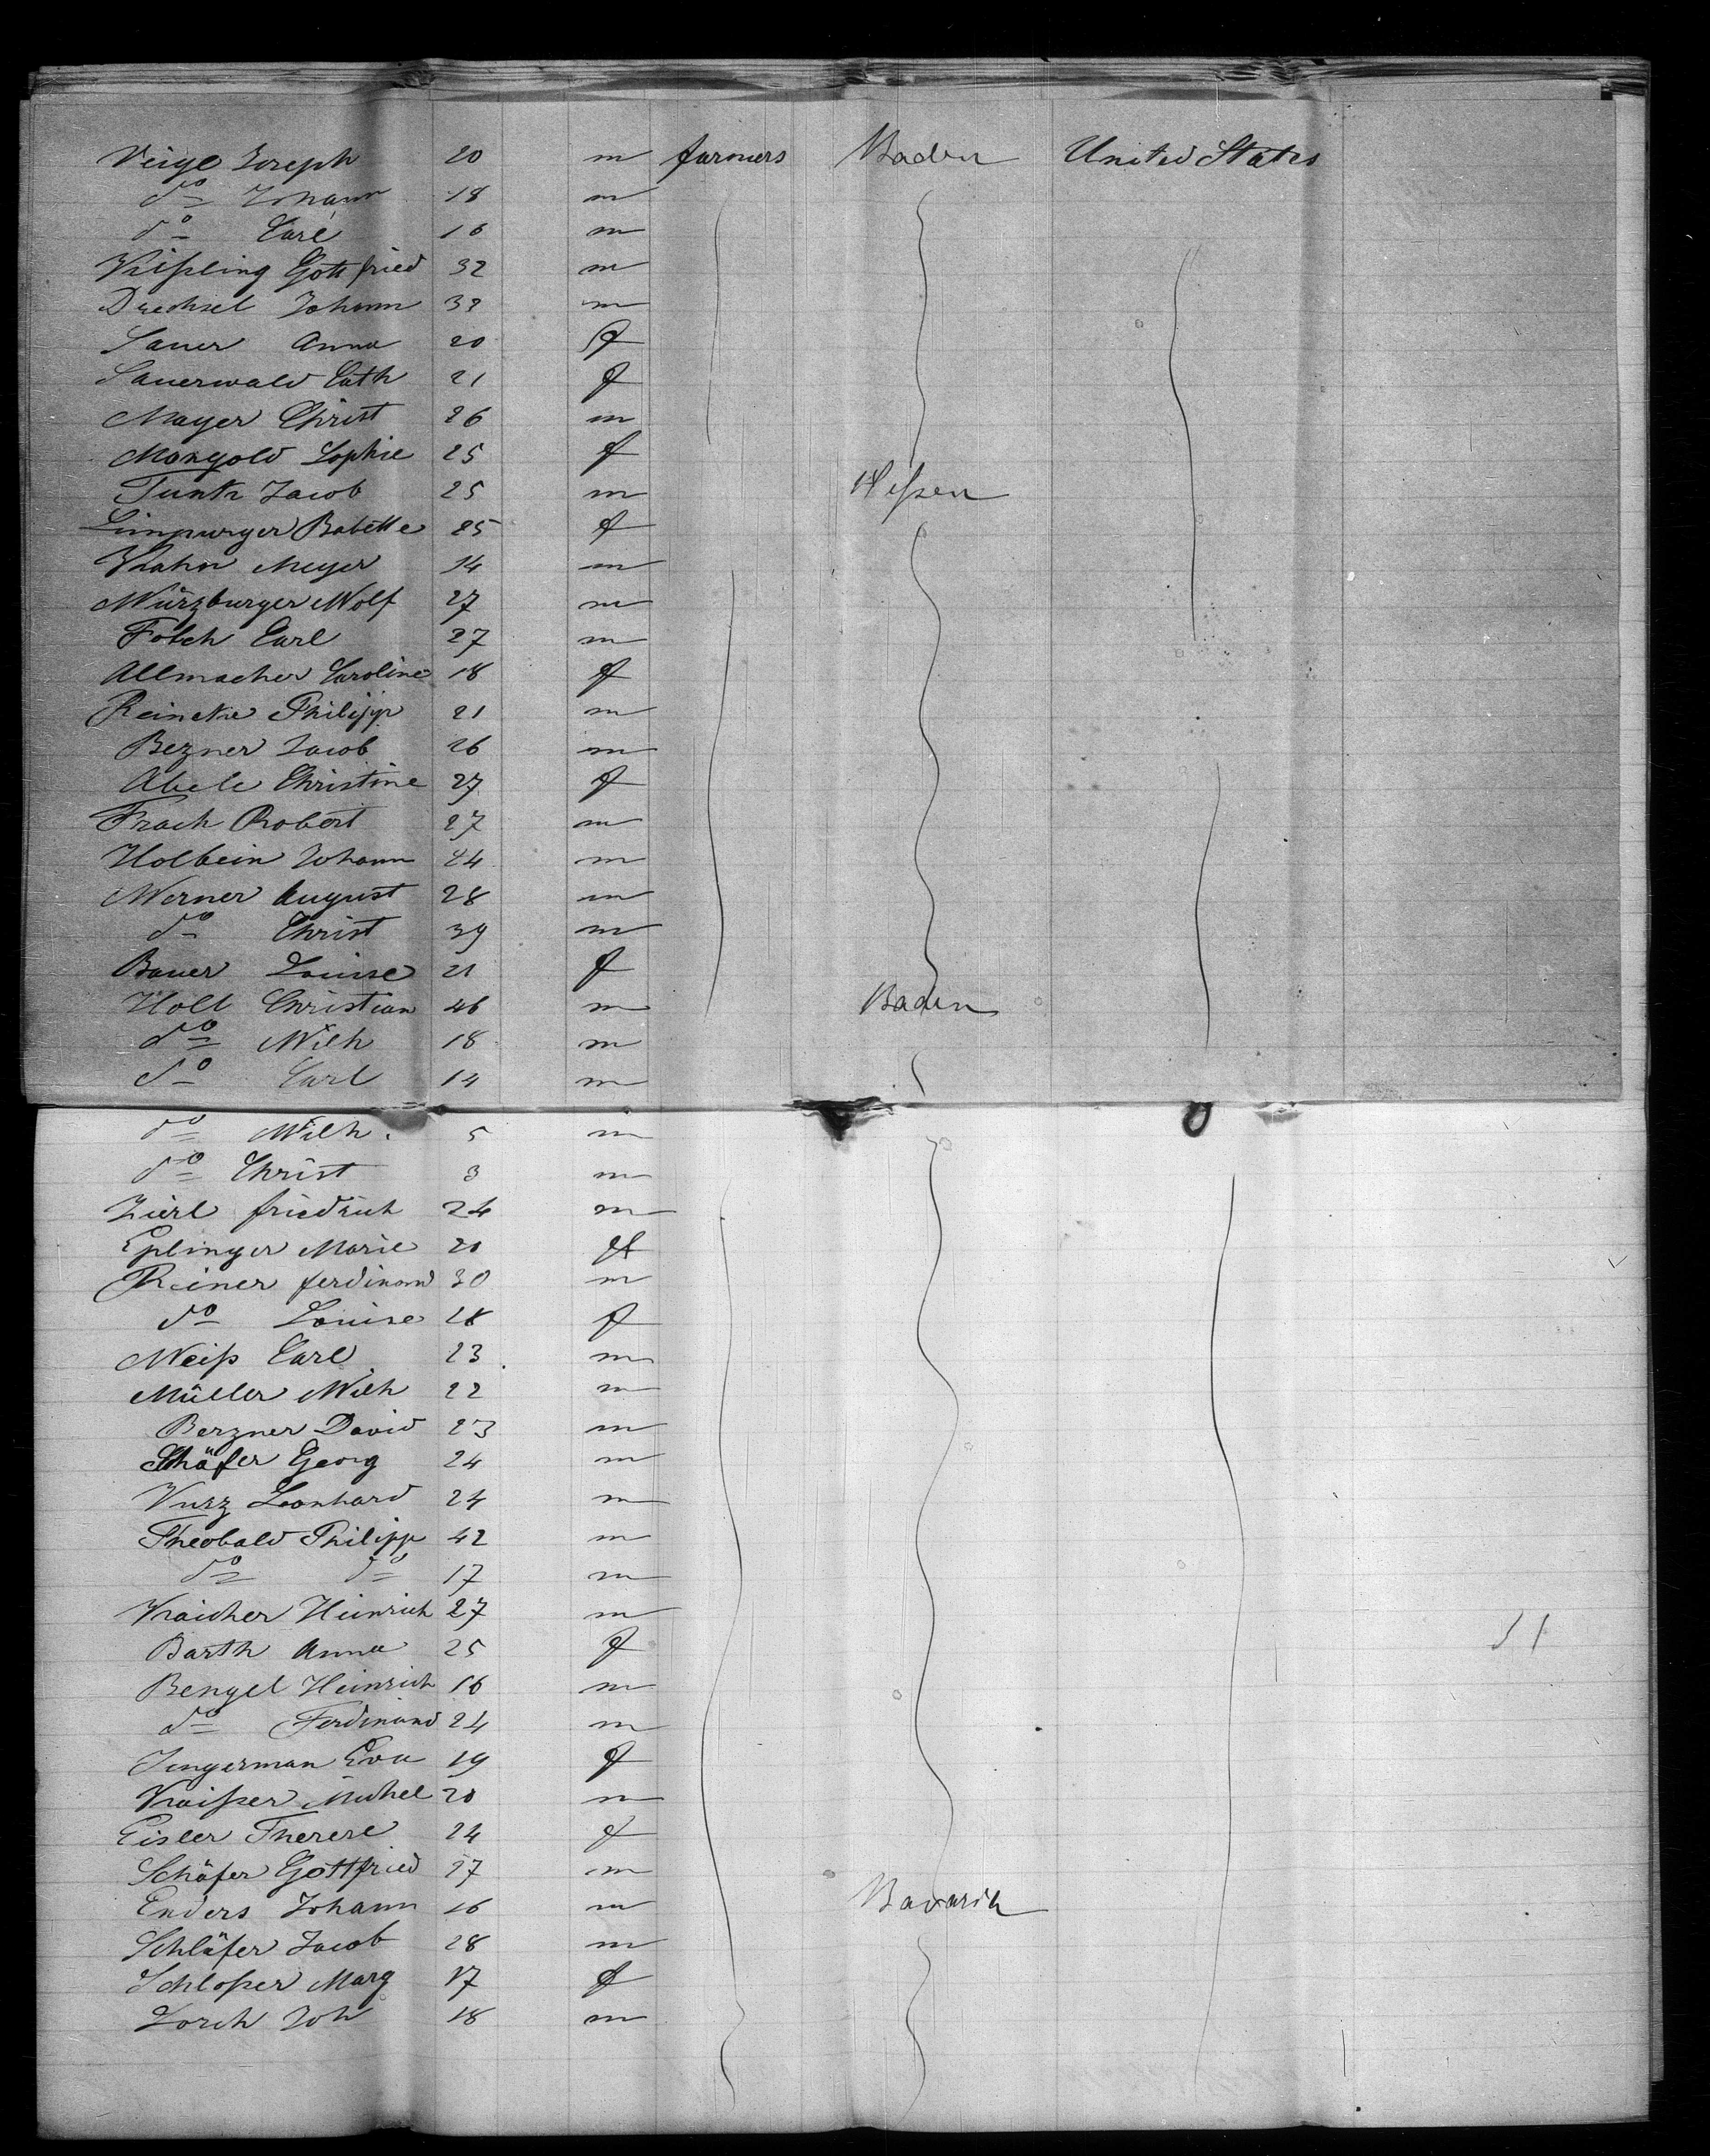 Veige Joseph 20 m farmers Baden United States
do Johann 18 m
do Carl 16 m
Kißling Gottfried 32 m
Drechsel Johann 32 m
Sauer Anna 20 f
Sauerwald Cath 21 f
Mayer Christ 26 m
Mangold Sophie 25 f
Funk Jacob 25 m Hessen
Limpurger Babette 25 f
Kahn Meyer 14 m
Würzburger Wolf 27 m
Fotch Carl 27 m
Allmacher Caroline 18 f
Reincke Philipp 21 m
Bezner Jacob 26 m
Abele Christine 27 f
Frach Robert 27 m
Holbein Johann 24 m
Werner August 28 m
do Christ 39 m
Bauer Louise 21 f
Holl Christian 46 m Baden
do Wilh 18 m
do Carl 14 m
do Wilh. 5 m
do Christ 3 m
Zierl friedrich 24 m
Eplinger Marie 20 f
Reiner ferdinand 30 m
do Louise 28 f
Weiß Carl 23 m
Müller Wilh 22 m
Berzner David 23 m
Schäfer Georg 24 m
Kurz Leonhard 24 m
Theobald Philipp 42 m
do do 17 m
Kraicher Heinrich 27 m
Barth Anna 25 f
Bengel Heinrich 16 m
do Ferdinand 24 m
Jngerman Eva 19 f
Kraißer Michel 20 m
Eisler Therese 24 f
Schäfer Gottfried 27 m
Enders Johann 16 m Bavaria
Schläfer Jacob 28 m
Schloßer Marg 17 f
Lorch Joh 18 m